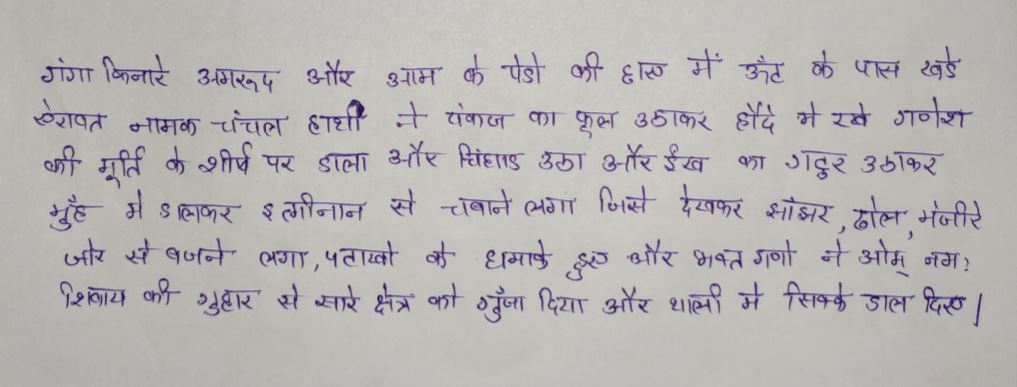 गंगा किनारे अमरूद और आम के पेडो की छाव में ऊँट के पास खडे
ऐरावत नामक चंचल हाथी ने पंकज का फूल उठाकर हौदे मे रखे गणेश
की मूर्ति के शीर्ष पर डाला और चिंघाड उठा और ईख का गट्ठर उठाकर
मुँह मे डालकर इत्मीनान से चबाने लगा जिसे देखकर झांझर, ढोल, मंजीरे
जोर से बजने लगा, पटाखो के धमाके हुए और भक्त गणो ने ओम् नमः
शिवाय की गुहार से सारे क्षेत्र को गुँजा दिया और थाली मे सिक्के डाल दिए।